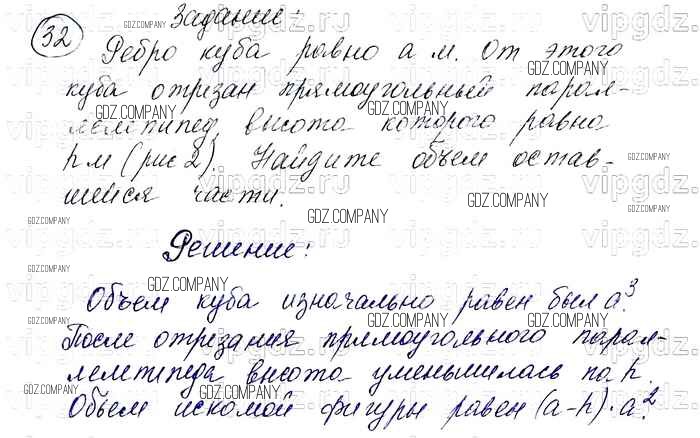 Задание:
32
Ребро куба равно a м. От этого
куба отрезан прямоугольный парал-
лелепипед, высота которого равна
h м (рис 2). Найдите объем остав-
шейся части.
Решение:
Объем куба изначально равен был a³.
После отрезания прямоугольного парал-
лелепипеда высота уменьшилась на h.
Объем искомой фигуры равен (a-h)·a².
GDZ.COMPANY
vipgdz.ru